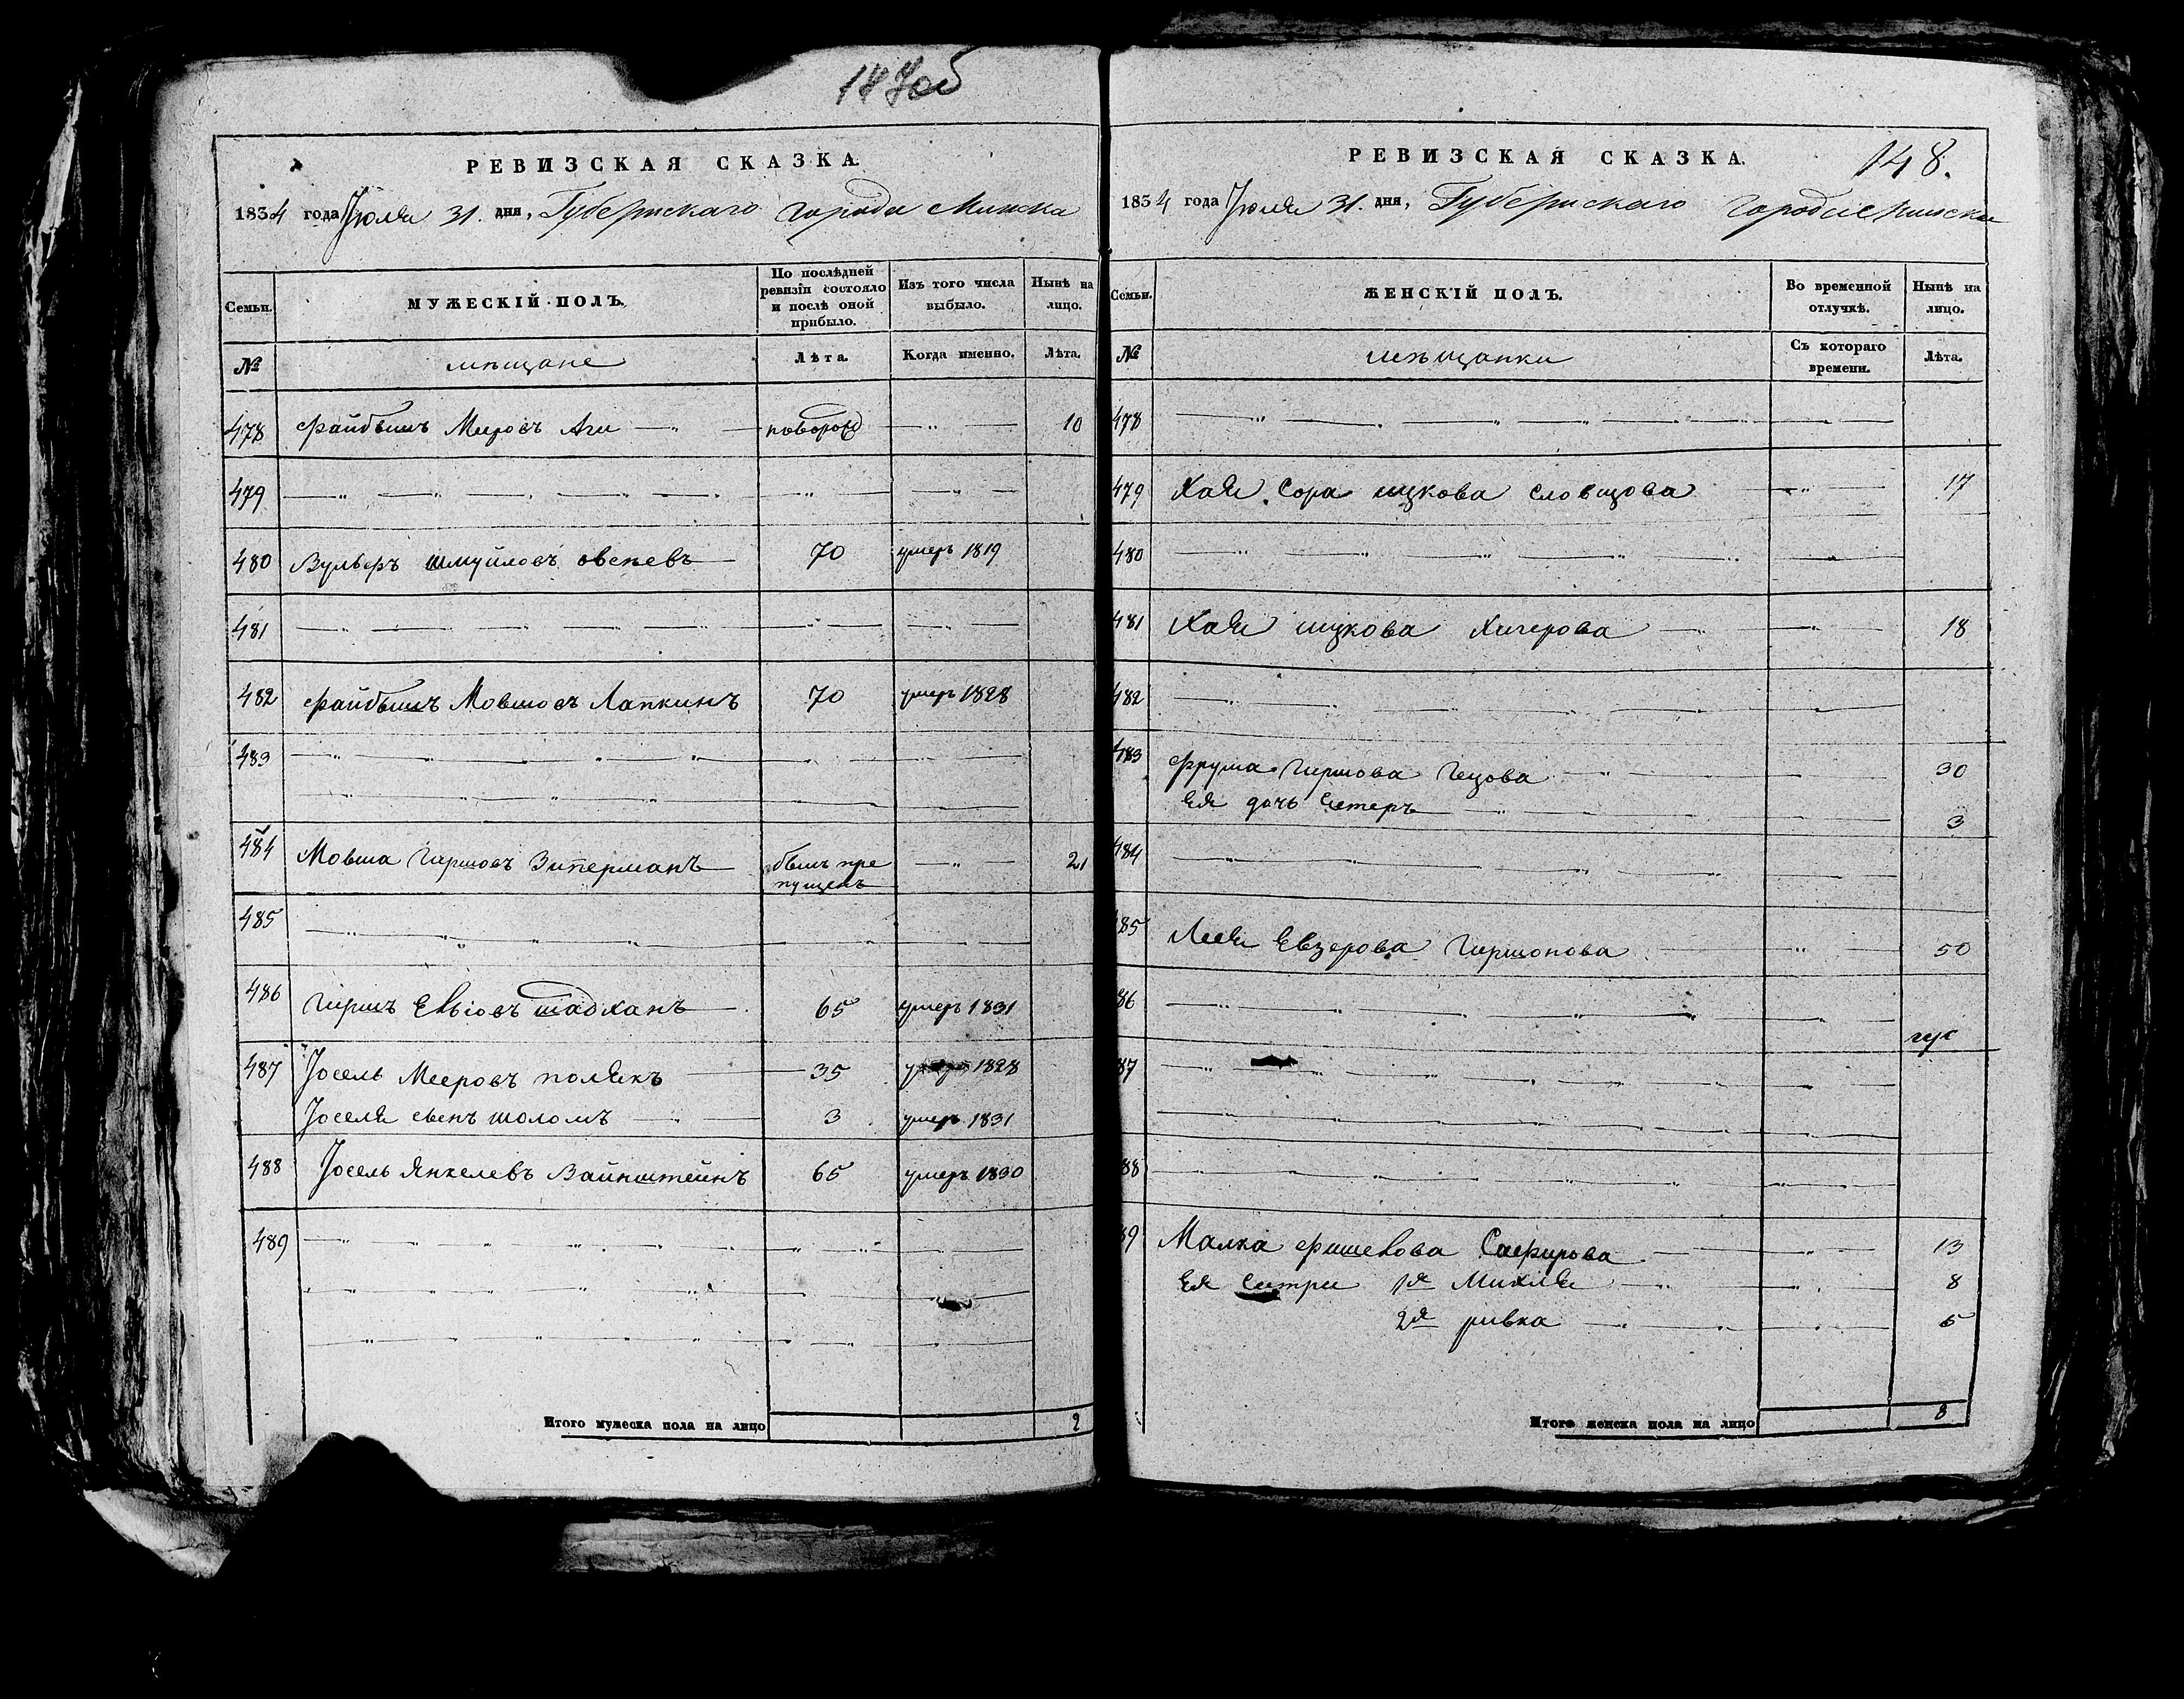 147об
РЕВИЗСКАЯ СКАЗКА.
1834 года Іюля 31. дня, Губернскаго города Минска
Семьи.
МУЖЕСКІЙ ПОЛЪ.
По послѣдней ревизіи состояло и послѣ оной прибыло.
Изъ того числа выбыло.
Нынѣ на лицо.
№
мѣщане
Лѣта.
Когда именно.
Лѣта.
478 Файбышъ Меровъ Аги новорож 10
479
480 Вульфъ Шмуйловъ Овсеевъ 70 умеръ 1819
481
482 Файбышъ Мовшовъ Лапкинъ 70 умеръ 1828
483
484 Мовша Гиршовъ Зиперманъ былъ пропущенъ 21
485
486 Гиршъ Евіовъ Шадханъ 65 умеръ 1831
487 Іосель Мееровъ Полякъ 35 умеръ 1828
Іоселя сынъ Шоломъ 3 умеръ 1831
488 Іосель Янкелевъ Вайнштейнъ 65 умеръ 1830
489
Итого мужеска пола на лицо 2
РЕВИЗСКАЯ СКАЗКА.
148.
1834 года Іюля 31. дня, Губернскаго города Минска
Семьи.
ЖЕНСКІЙ ПОЛЪ.
Во временной отлучкѣ.
Нынѣ на лицо.
№
мѣщанки
Съ котораго времени.
Лѣта.
478
479 Хая Сора Ицкова Словцова 17
480
481 Хая Ицкова Кичерова 18
482
483 Фрума Гиршова Гецова 30
Ея дочь Эстеръ 3
484
485 Лея Евзерова Гиршонова 50
86
87
88
89 Малка Фишелова Сафирова 13
Ея сестры 1я Михля 8
2я Ривка 5
Итого женска пола на лицо 8